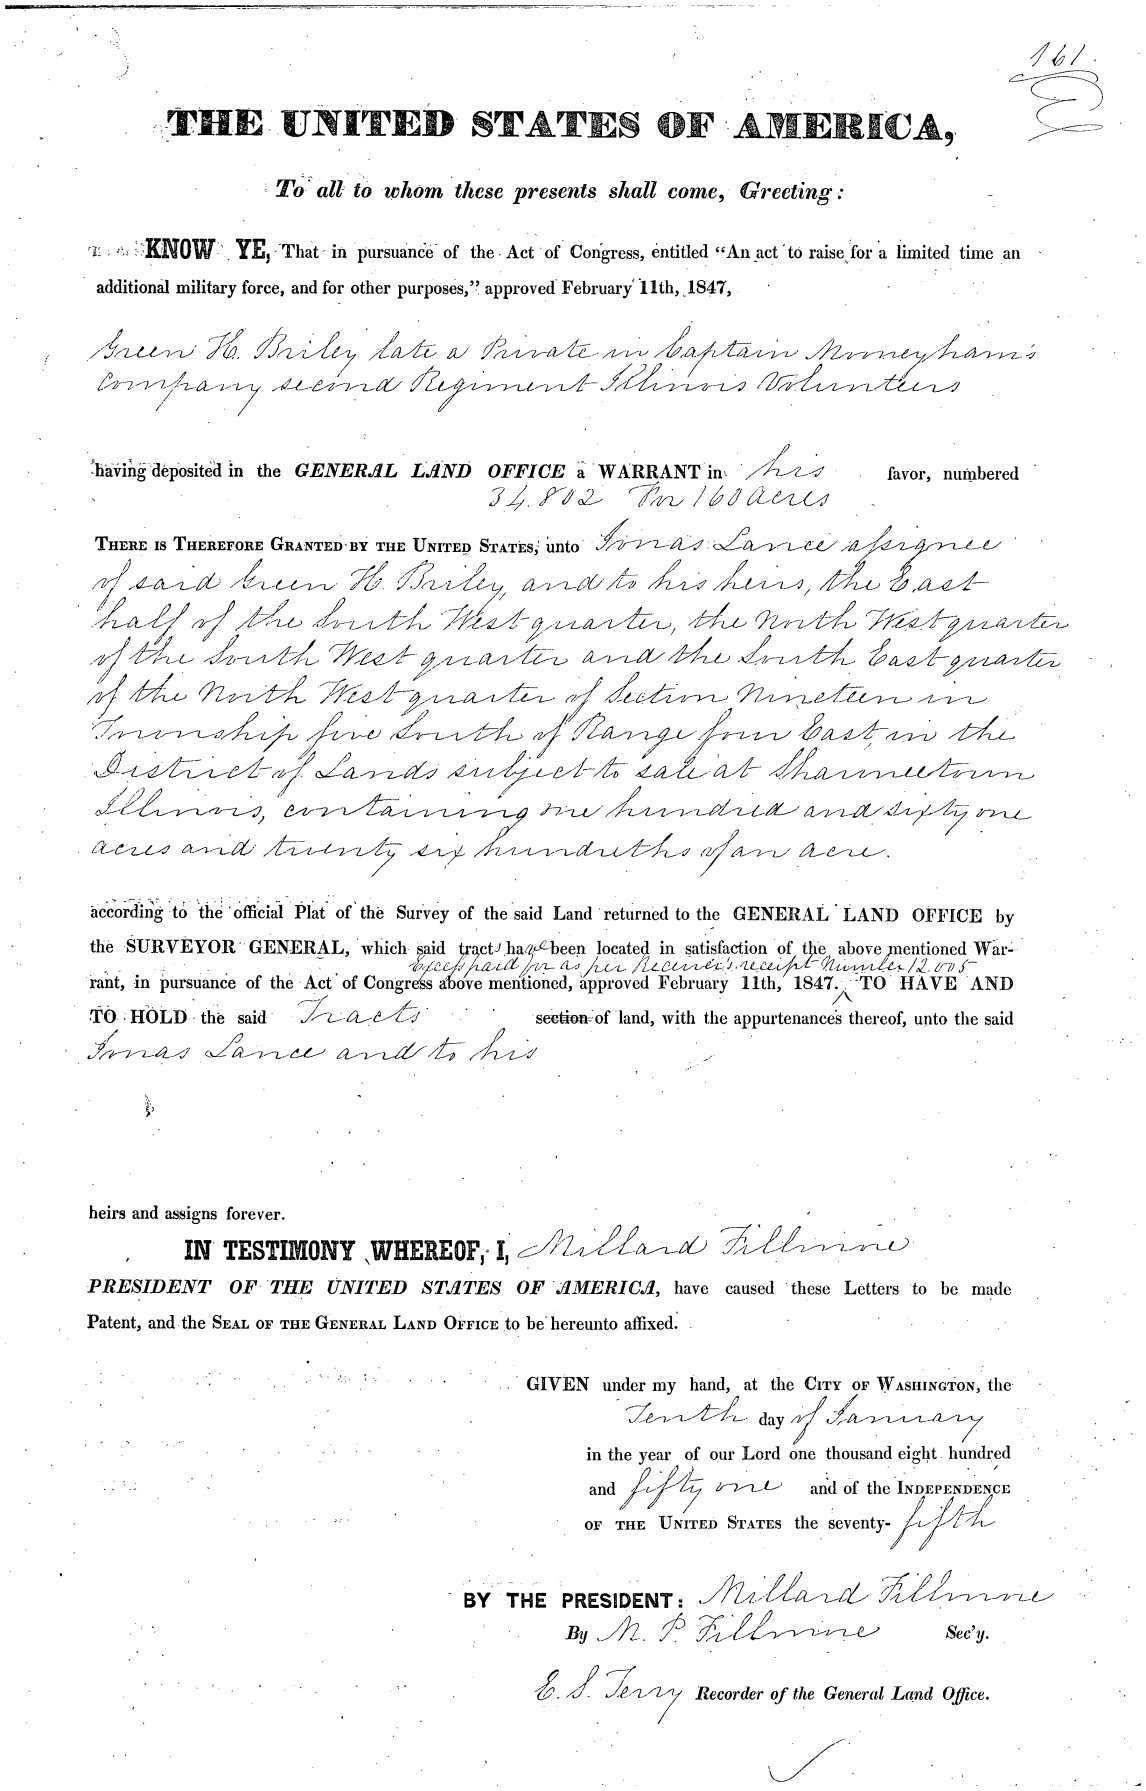 161.
THE UNITED STATES OF AMERICA,
To all to whom these presents shall come, Greeting:
KNOW YE, That in pursuance of the Act of Congress, entitled “An act to raise for a limited time an
additional military force, and for other purposes,” approved February 11th, 1847,
Green H. Briley late a Private in Captain Mooneyham's
Company second Regiment Illinois Volunteers
having deposited in the GENERAL LAND OFFICE a WARRANT in his favor, numbered
34.802 For 160 acres
THERE IS THEREFORE GRANTED BY THE UNITED STATES, unto Jonas Lance assignee
of said Green H. Briley, and to his heirs, the East
half of the South West quarter, the North West quarter
of the South West quarter and the South East quarter
of the North West quarter of Section Nineteen in
Township five South of Range four East, in the
District of Lands subject to sale at Shawneetown
Illinois, containing one hundred and sixty one
acres and twenty six hundreths of an acre.
according to the official Plat of the Survey of the said Land returned to the GENERAL LAND OFFICE by
the SURVEYOR GENERAL, which said tracts have been located in satisfaction of the above mentioned War-
Excess paid for as per Receiver's receipt Number 12.005
rant, in pursuance of the Act of Congress above mentioned, approved February 11th, 1847. TO HAVE AND
TO HOLD the said Tracts section of land, with the appurtenances thereof, unto the said
Jonas Lance and to his
heirs and assigns forever.
IN TESTIMONY WHEREOF, I, Millard Fillmore
PRESIDENT OF THE UNITED STATES OF AMERICA, have caused these Letters to be made
Patent, and the SEAL OF THE GENERAL LAND OFFICE to be hereunto affixed.
GIVEN under my hand, at the CITY OF WASHINGTON, the
Tenth day of January
in the year of our Lord one thousand eight hundred
and fifty one and of the INDEPENDENCE
OF THE UNITED STATES the seventy-fifth
BY THE PRESIDENT: Millard Fillmore
By M. P. Fillmore Sec'y.
E. S. Terry Recorder of the General Land Office.